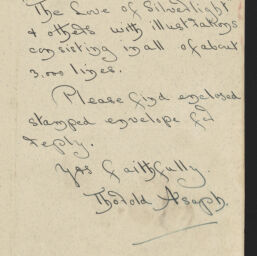 The Love of Silverlight
& others with illustrations
consisting in all of about
3,000 lines.
Please find enclosed
stamped envelope for
reply.
Yrs faithfully.
Thorold Asaph.